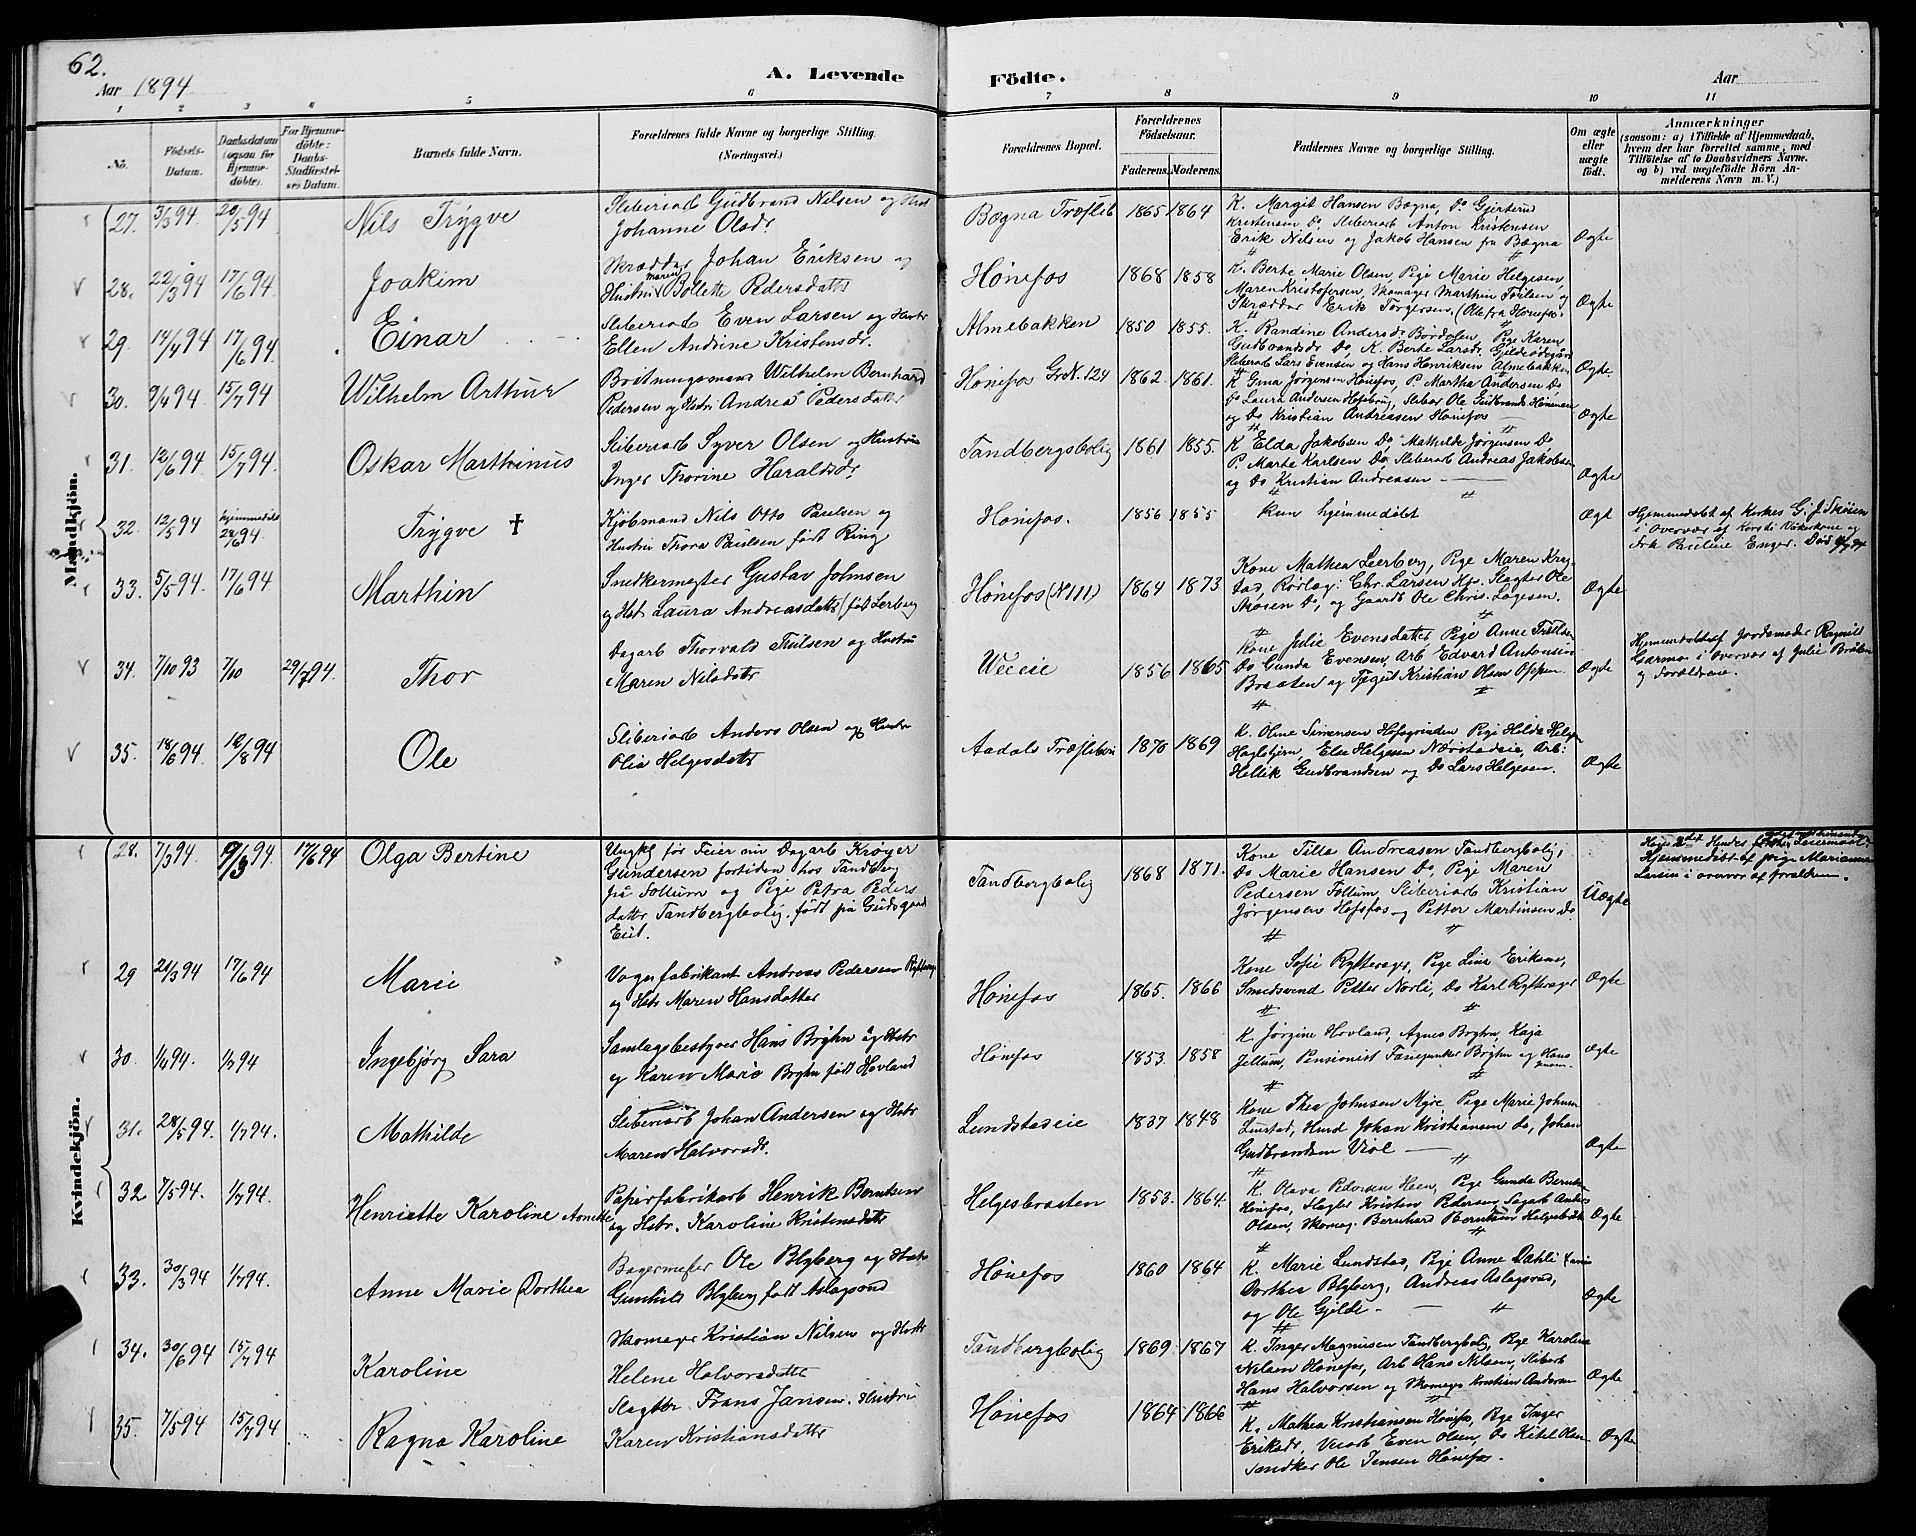 62.
Aar 1894
A. Levende Födte.
Aar
1 2 3 4 5 6 7 8 9 10 11
No.
Födsels-Datum.
Daabsdatum (ogsaa for Hjemmedöbte).
For Hjemmedöbte: Daabs-Stadfæstelses Datum.
Barnets fulde Navn.
Forældrenes fulde Navne og borgerlige Stilling. (Næringsvei.)
Forældrenes Bopæl.
Forældrenes Födselsaar.
Faderens. Moderens.
Faddernes Navne og borgerlige Stilling.
Om ægte eller uægte födt.
Anmærkninger
(saasom: a) i Tilfælde af Hjemmedaab, hvem der har forrettet samme, med Tilföielse af to Daabsvidners Navne. og b) ved uægtefödte Börn Anmelderens Navn m. V.)
Mandkjön.
27. 3/3 94 20/5 94 Nils Trygve
Sliberiarb Gudbrand Nilsen og Hust
Johanne Olsdr
Bægna Træslib 1865 1864
K. Margit Hansen Bægna, Do Gjertrud
Kristensen Do, Sliberiarb Anton Kristensen
Erik Nilsen og Jakob Hansen fra Bægna
Ægte
28. 22/3 94 17/6 94. Joakim
Skrædder Johan Eriksen og
Hustru Maren Collette Pedersdatt
Hönefos 1868 1858
K. Berte Marie Olsen, Pige Marie Helgesen,
Maren Kristofersen, Skomager Marthin Torlsen og
Skrædder Erik Torgersen. (Ole fra Hönefos.
Ægte
29. 14/4 94 17/6 94. Einar
Sliberiarb Even Larsen og Hustr
Ellen Andrine Kristensdr.
Almebakken 1850 1855.
K. Randine Andersdr Børdalen, Pige Karen
Gudbrandsdr Do, K. Berte Larsdr Gjeldeødegård
Sliberarb Lars Evensen og Hans Henriksen Almebakken
Ægte
30. 9/4 94 15/7 94 Wilhelm Arthur
Britningsmand Wilhelm Bernhard
Pedersen og Hstr Andrea Pedersdatter
Hönefos GrN. 124 1862. 1861.
K Gina Jørgensen Hönefos, P. Martha Andersen Do
Do Laura Andersen Hofsbrug, Slibar Ole Gudbrands Höneneie
og Do Kristian Andreasen Hönefos
Ægte
31. 12/6 94 15/7 94. Oskar Marthinus
Sliberiarb Syver Olsen og Hustru
Inger Thorine Haraldsdr
Tandbergsbolig 1861 1855.
K Elda Jakobsen Do, Mathilde Jørgensen Do
P. Marte Karlsen Do, Sliberarb Andreas Jakobsen
og Do Kristian Andreasen
Ægte
32. 12/5 94 hjemmedøbt 28/6 94. Trygve †
Kjöbmand Nils Otto Paulsen og
Hustru Thora Paulsen født Ring
Hönefos. 1856 1855
kun hjemmedøbt
Ægt
Hjemmedøbt af Kirkes G. J. Skøien
i Overvær af Kersti Vikerkone og
Frk Pauline Enger. Død
33. 5/5 94. 17/6 94. Marthin
Snedkermester Gustav Johnsen
og Hstr Laura Andreasdattr (født Lerberg
Hönefos (N 111) 1864 1873
Kone Mathea Leerberg, Pige Maren Kris-
tad, Rørlæg: Chr. Larsen Hfs. Slagter Ole
Mosen Do, og Gaardb Ole Chris. Løgesen.
Ægte
34. 7/10 93 7/10 29/7 94. Thor
Dagarb Thorvald Tiulsen og Hustru
Maren Nilsdatr
Weeie 1856 1865
Kone Julie Evensdatter Pige Anne Triulsen
Do Gunda Evensen, Arb Edvard Antonsen
Braaten og Tegut Kristian Olsen Oppen
Ægte
Hjemmedøbt af Jordmoder Ragnild
Garmo i Overvær af Julie Bråten
og Forældrene.
35. 18/6 94. 12/8 94 Ole
Sliberiarb Anders Olsen og Hustr
Olia Helgesdattr
Aadals Træsliberi 1870 1869
K. Oline Simensen Hofsgrinden Pige Hilda Helge
Hagbyhjern, Else Helgesen Nærstadeie, Arb:
Hellik Gudbrandsen og Do Lars Helgesen.
Ægte
Kvindekjön.
28. 7/3 94. 9/3 94 17/6 94 Olga Bertine
Ungkl før Feier nu Dagarb Krøger
Gundersen fortiden hos Tandberg
på Follum og Pige Petra Peders
datter Tandbergbolig, født på Gudsgaard
Eiet.
Tandbergbolig 1868 1871.
Kone Tilla Andreasen Tandbergbolig,
Do Marie Hansen Do, Pige Maren
Pedersen Follum, Sliberiarb Kristian
Jørgensen Hofsfos og Petter Martinsen Do
Uægte
Hans 2det Hendes første Leiermaal.
Hjemmedøbt af pige Marianne
Larsen i overvær af forældrene.
29 21/3 94 17/6 94 Marie
Vognfabrikant Andreas Pedersen Rytterager
og Hstr Maren Hansdatter
Hönefos 1865. 1866
Kone Sofie Rytterager, Pige Lina Eriksen,
Smedsvend Petter Norli, Do Karl Rytterager
Ægte
30. 1/4 94. 1/7 94 Ingebjørg Sara
Samlagsbestyrer Hans Brøhn og Hstr
og Karen Marie Brøhn født Hovland
Hönefos 1853. 1858
K. Jørgine Hovland, Agnes Brøhn, Kaja
Jellum, Pensionist Fanejunker Brøhn og Hans
Ægte
31. 28/5 94. 1/7 94. Mathilde
Sliberiarb Johan Andersen og Hstr
Maren Halvorsdr.
Lundstadeie 1837 1848
Kone Thea Johnsen Myre, Pige Marie Johnsen
Lunstad, Husd Johan Kristiansen Do, Johan
Gudbrandsen Viol
Ægte
32 7/5 94. 1/7 94. Henriette Karoline Annette
Papirfabrikarb Henrik Berntsen
og Hstr. Karoline Kristensdattr
Helgesbraaten 1853. 1864.
K. Olava Pedersen Heen, Pige Gunda Berntsen
Hönefos, Slagter Kristen Pedersen, Sagarb Anders
Olsen, Skomag. Bernhard Berntsen Helgesbråt
Ægte
33. 30/3 94 1/7 94. Anne Marie Dorthea
Bagermester Ole Blyberg og Hustr
Gunhild Blyberg født Aslagsrud
Hönefos 1860 1864
K. Marie Lundstad, Pige Anne Dahli
Dorthea Blyberg, Andreas Aslagsrud,
og Ole Gjelde.
Ægte
34. 30/6 94 15/7 94 Karoline
Skomager Kristian Nilsen og Hustr
Helene Halvorsdatter
Tandbergbolig 1869 1867
K. Inger Magnusen Tandbergbolig, Pige Karoline
Nilsen Hönefos, Arb Hans Nilsen, Slibarb
Hans Halvorsen og Skomager Kristian Andersen
Ægte
35. 7/5 94 15/7 94 Ragna Karoline
Slagter Frans Jansen. Hustru
Karen Kristiansdattr
Hönefos 1864 1866
K. Mathea Kristiansen Hönefos, Pige Inger
Eriksdr, Veiarb Even Olsen, Do Ketil Olsen
Sandker Ole Jensen Hönefos.
Ægte